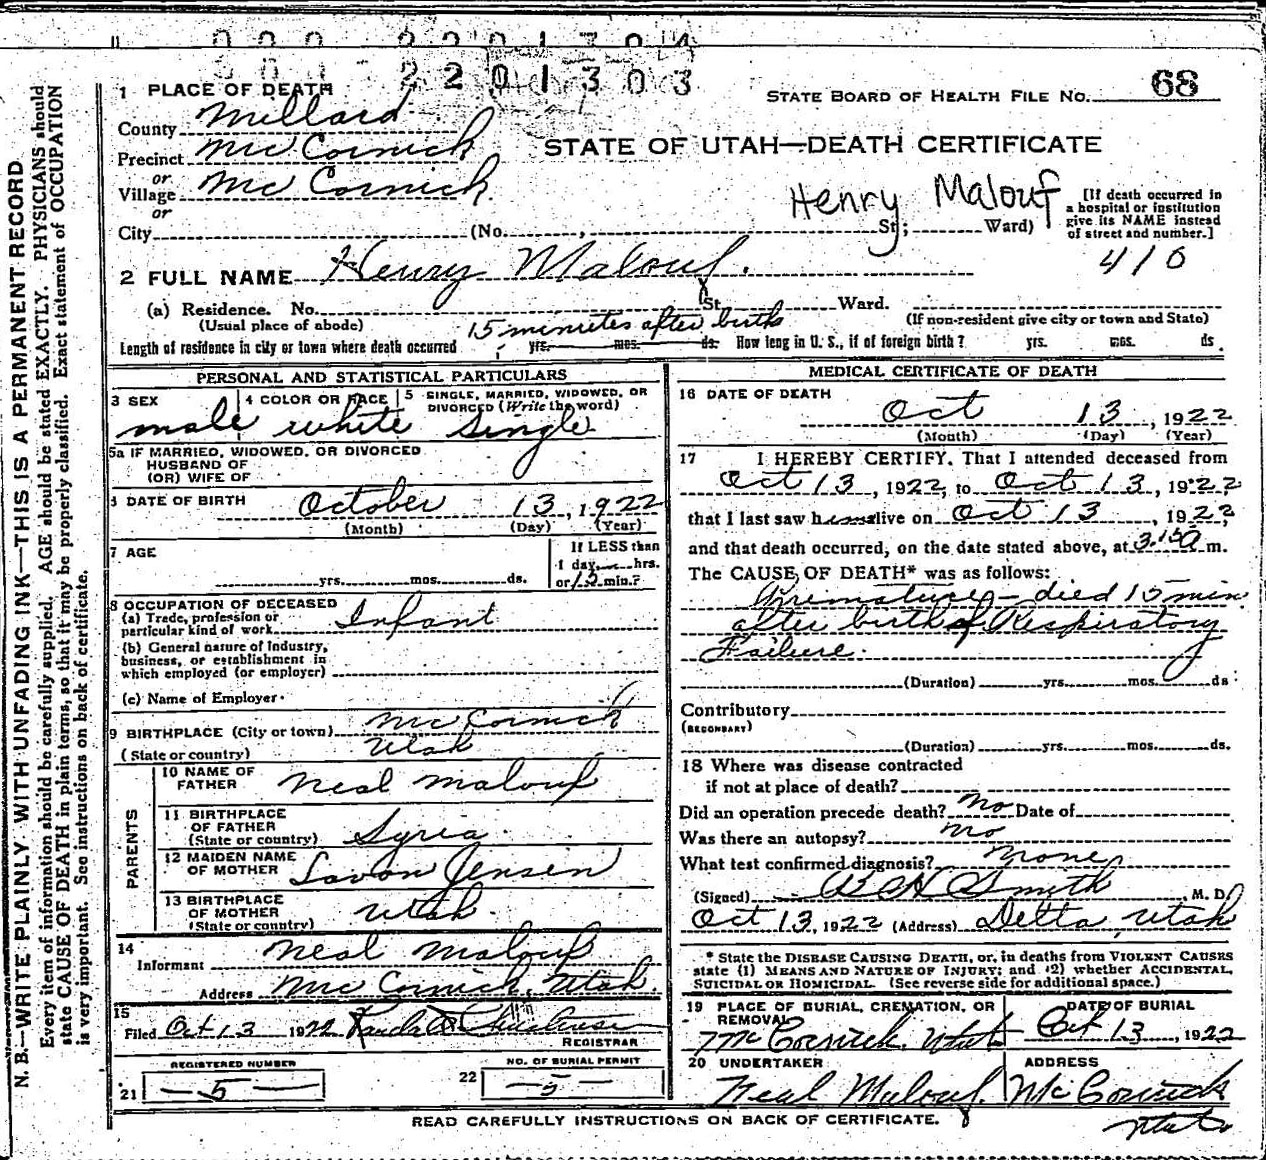 2201303
1 PLACE OF DEATH
STATE BOARD OF HEALTH FILE NO. 68
County Millard
STATE OF UTAH—DEATH CERTIFICATE
Precinct McCornick
or
Village McCornick
or
Henry Malouf
City (No. , St; Ward)
[If death occurred in a hospital or institution give its NAME instead of street and number.]
410
2 FULL NAME Henry Malouf.
(a) Residence. No. St. Ward.
(Usual place of abode)
(If non-resident give city or town and State)
15 minutes after birth
Length of residence in city or town where death occurred yrs. mos. ds. How long in U. S., if of foreign birth? yrs. mos. ds.
PERSONAL AND STATISTICAL PARTICULARS
3 SEX 4 COLOR OR RACE 5 SINGLE, MARRIED, WIDOWED, OR DIVORCED (Write the word)
male white single
5a IF MARRIED, WIDOWED, OR DIVORCED
HUSBAND OF
(OR) WIFE OF
6 DATE OF BIRTH October 13, 1922
(Month) (Day) (Year)
7 AGE
If LESS than
1 day, hrs.
yrs. mos. ds. or 15 min.?
8 OCCUPATION OF DECEASED
(a) Trade, profession or
particular kind of work Infant
(b) General nature of Industry,
business, or establishment in
which employed (or employer)
(c) Name of Employer
9 BIRTHPLACE (City or town) McCornick
(State or country) Utah
PARENTS
10 NAME OF FATHER Neal Malouf
11 BIRTHPLACE OF FATHER
(State or country) Syria.
12 MAIDEN NAME OF MOTHER Lavon Jensen
13 BIRTHPLACE OF MOTHER
(State or country) Utah.
14
Informant Neal Malouf
Address McCornick, Utah.
15
Filed Oct 13 1922
REGISTRAR
REGISTERED NUMBER
21 —5—
NO. OF BURIAL PERMIT
22 —5—
MEDICAL CERTIFICATE OF DEATH
16 DATE OF DEATH
Oct 13, 1922
(Month) (Day) (Year)
17 I HEREBY CERTIFY, That I attended deceased from
Oct 13, 1922, to Oct 13, 1922,
that I last saw him alive on Oct 13, 1922,
and that death occurred, on the date stated above, at m.
The CAUSE OF DEATH* was as follows:
Premature – died 15 min
after birth of Respiratory
Failure.
(Duration) yrs. mos. ds.
Contributory
(SECONDARY)
(Duration) yrs. mos. ds.
18 Where was disease contracted
if not at place of death?
Did an operation precede death? No Date of
Was there an autopsy? No
What test confirmed diagnosis? None
(Signed) Smith M. D.
Oct 13, 1922 (Address) Delta, Utah
* State the DISEASE CAUSING DEATH, or, in deaths from VIOLENT CAUSES
state (1) MEANS AND NATURE OF INJURY; and (2) whether ACCIDENTAL,
SUICIDAL OR HOMICIDAL. (See reverse side for additional space.)
19 PLACE OF BURIAL, CREMATION, OR REMOVAL DATE OF BURIAL
McCornick, Utah Oct 13, 1922
20 UNDERTAKER ADDRESS
Neal Malouf McCornick
Utah
READ CAREFULLY INSTRUCTIONS ON BACK OF CERTIFICATE.
N. B.—WRITE PLAINLY WITH UNFADING INK—THIS IS A PERMANENT RECORD
Every item of information should be carefully supplied. AGE should be stated EXACTLY. PHYSICIANS should
state CAUSE OF DEATH in plain terms, so that it may be properly classified. Exact statement of OCCUPATION
is very important. See instructions on back of certificate.